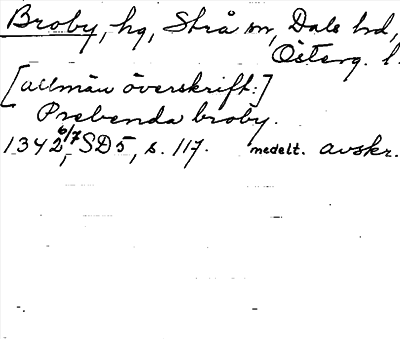 Broby, hg, Strå sn, Dals hd,
Österg. l.
[allmän överskrift:]
Prebenda broby.
1342 6/7, SD5, s. 117. medelt. avskr.